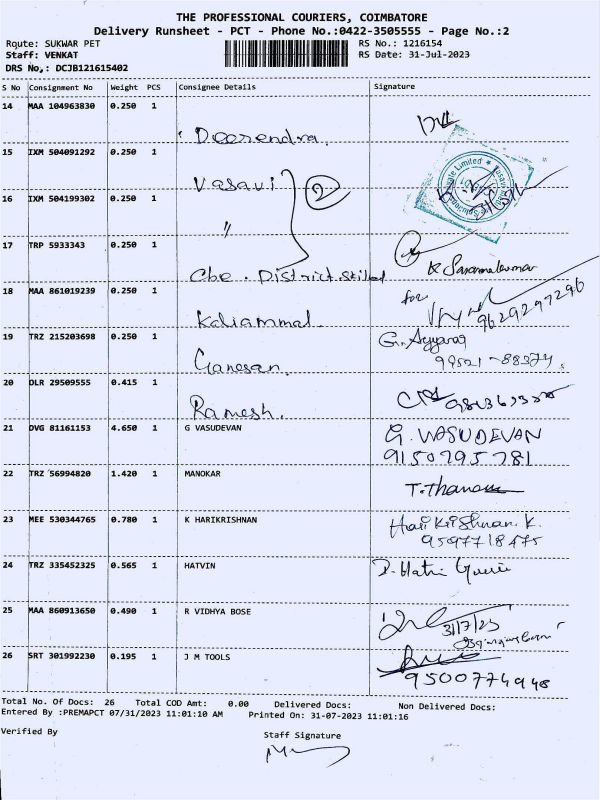 THE PROFESSIONAL COURIERS, COIMBATORE
Delivery Runsheet - PCT - Phone No.:0422-3505555 - Page No.:2
Route: SUKWAR PET RS No.: 1216154
Staff: VENKAT RS Date: 31-Jul-2023
DRS No,: DCJB121615402
S No Consignment No Weight PCS Consignee Details Signature
14 MAA 104963830 0.250 1
Deerendra.
15 IXM 504091292 0.250 1
Vasavi 2
16 IXM 504199302 0.250 1
"
17 TRP 5933343 0.250 1
Cbe. District skilled
18 MAA 861019239 0.250 1 for
Kaliammal 9629297296
19 TRZ 215203698 0.250 1
Ganesan. 99521-88374.
20 DLR 29509555 0.415 1
Ramesh.
21 DVG 81161153 4.650 1 G VASUDEVAN G. VASUDEVAN
9150795781
22 TRZ 56994820 1.420 1 MANOKAR
23 MEE 530344765 0.780 1 K HARIKRISHNAN Hari Krishnan. K.
9597718475
24 TRZ 335452325 0.565 1 HATVIN
25 MAA 860913650 0.490 1 R VIDHYA BOSE
31/7/23
26 SRT 301992230 0.195 1 J M TOOLS
9500774948
Total No. Of Docs: 26 Total COD Amt: 0.00 Delivered Docs: Non Delivered Docs:
Entered By :PREMAPCT 07/31/2023 11:01:10 AM Printed On: 31-07-2023 11:01:16
Verified By Staff Signature